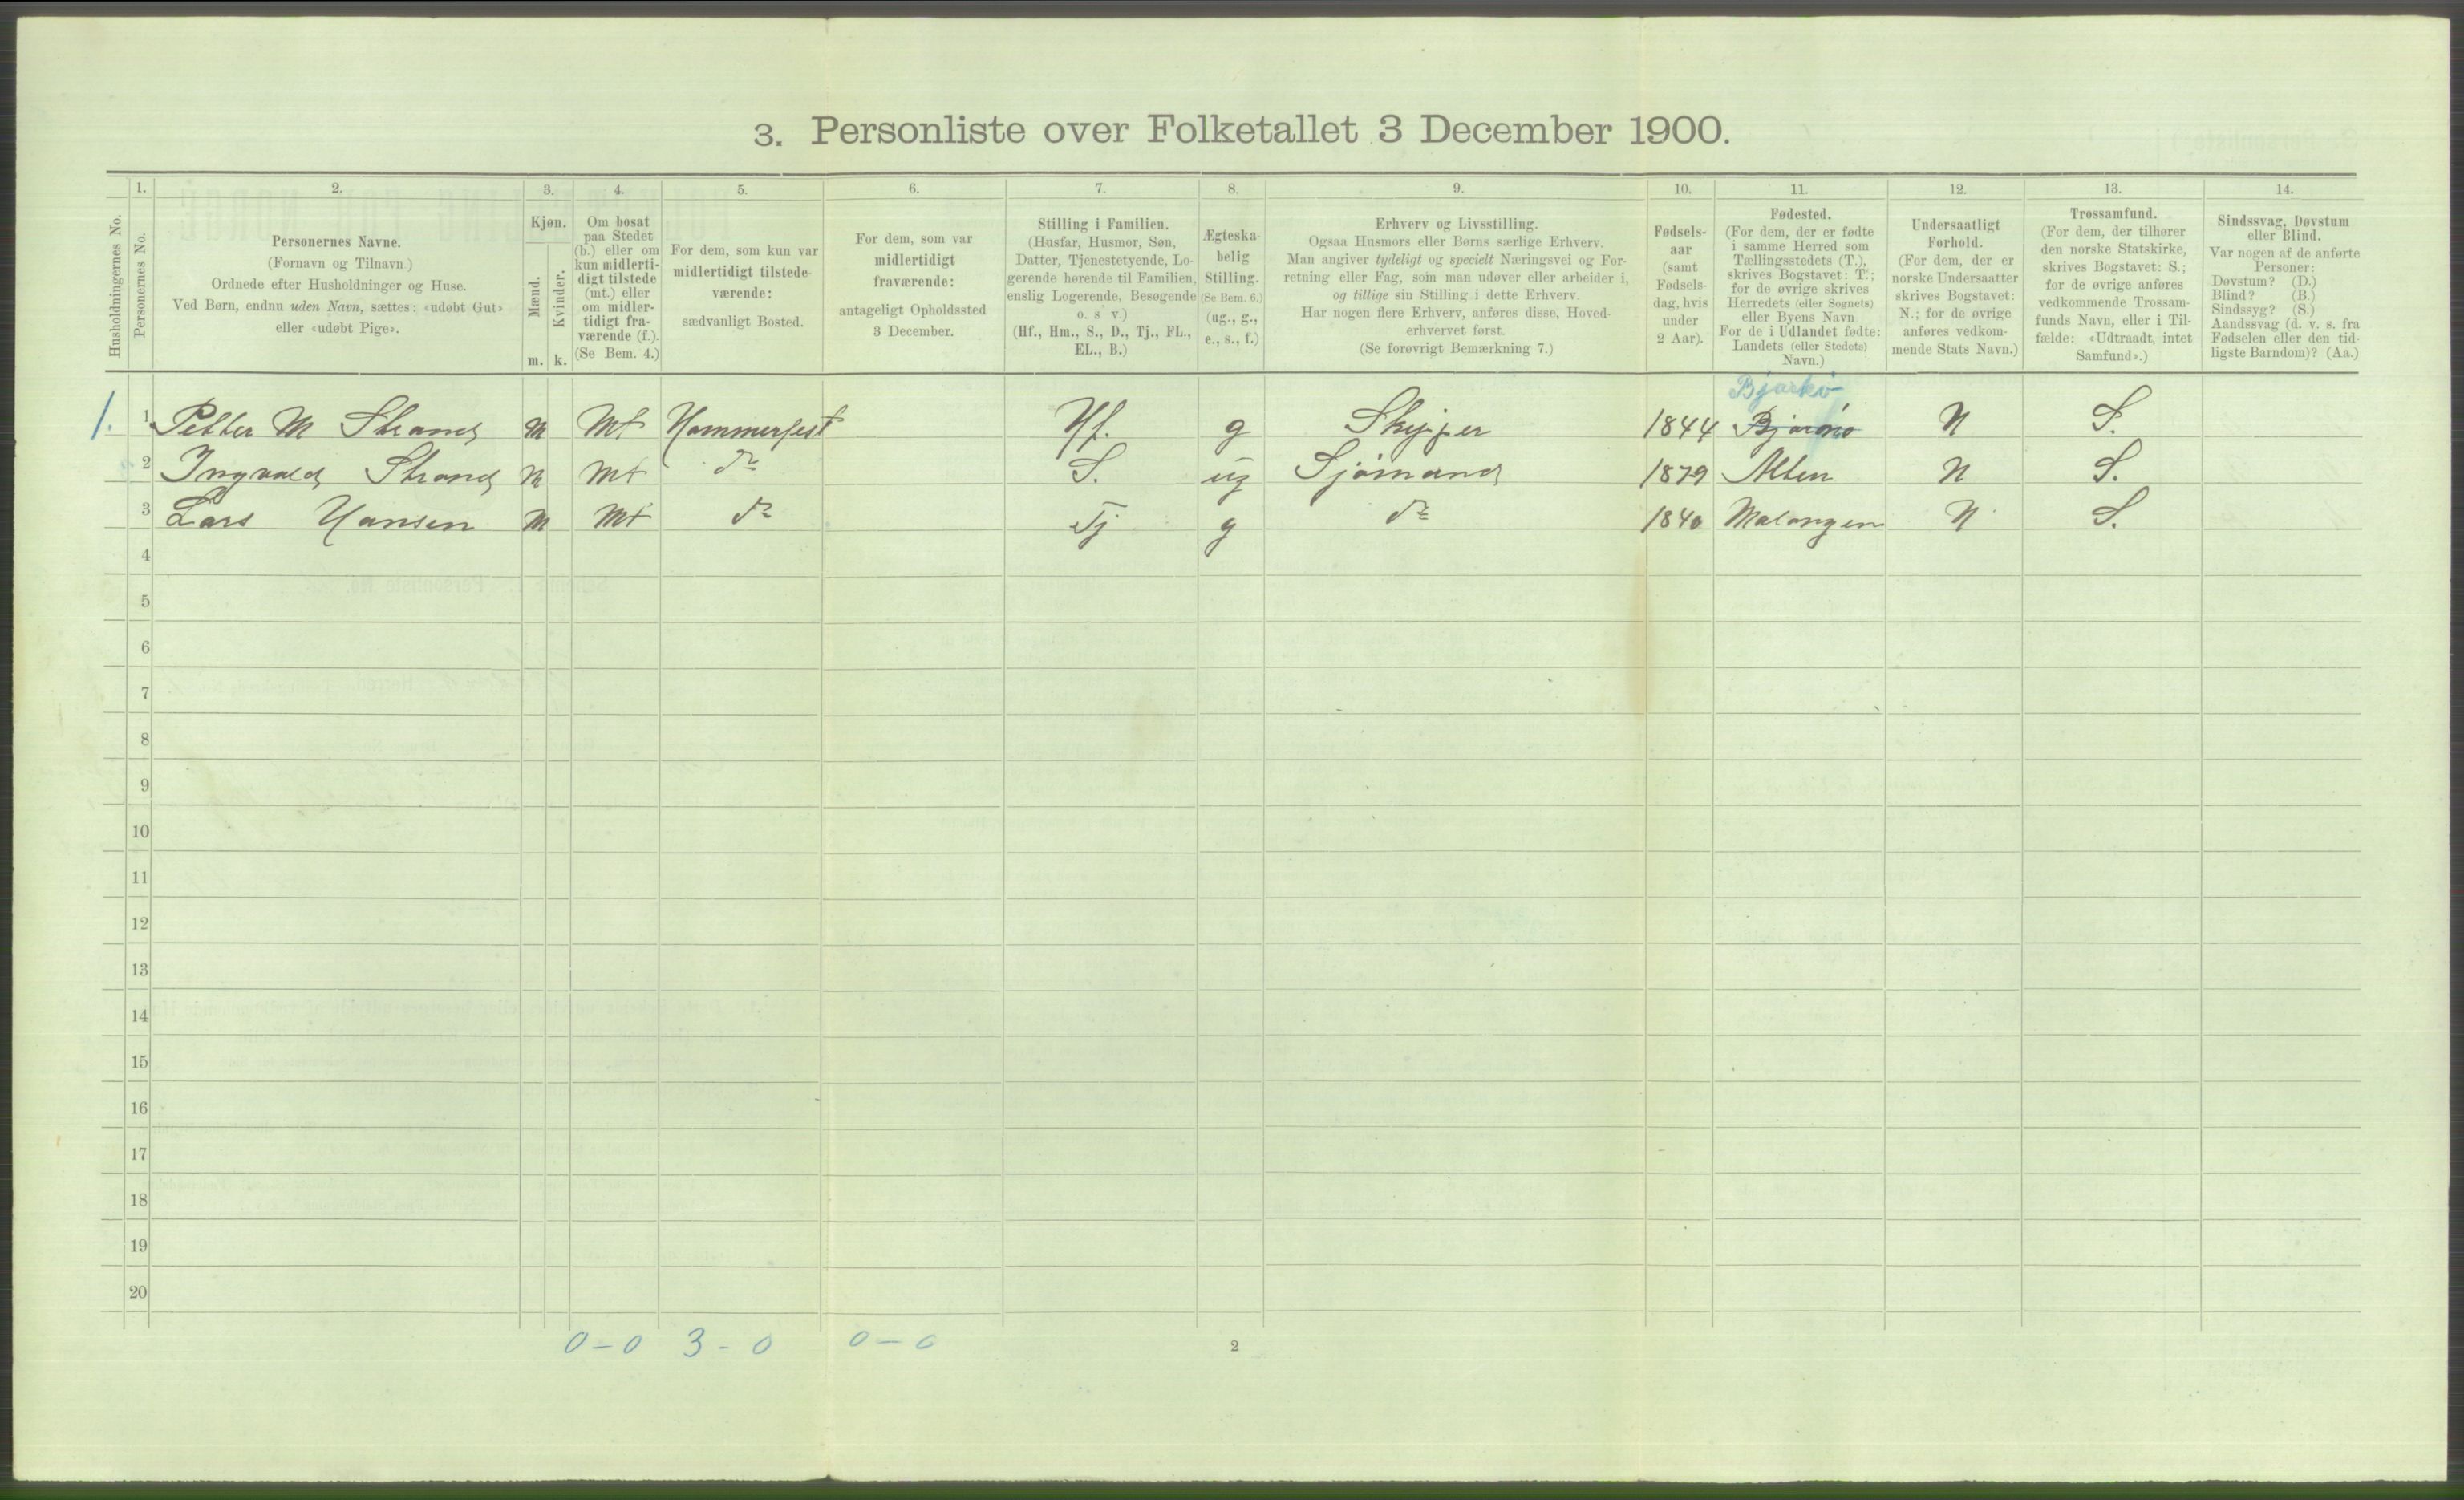 3. Personliste over Folketallet 3 December 1900.
1. 2. 3. 4. 5. 6. 7. 8. 9. 10. 11. 12. 13. 14.
Husholdningernes No.
Personernes No.
Personernes Navne.
(Fornavn og Tilnavn.)
Ordnede efter Husholdninger og Huse.
Ved Børn, endnu uden Navn, sættes: «udøbt Gut»
eller «udøbt Pige».
Kjøn.
Mænd.
Kvinder.
m. k.
Om bosat
paa Stedet
(b.) eller om
kun midlerti-
digt tilstede
(mt.) eller
om midler-
tidigt fra-
værende (f.).
(Se Bem. 4.)
For dem, som kun var
midlertidigt tilstede-
værende:
sædvanligt Bosted.
For dem, som var
midlertidigt
fraværende:
antageligt Opholdssted
3 December.
Stilling i Familien.
(Husfar, Husmor, Søn,
Datter, Tjenestetyende, Lo-
gerende hørende til Familien,
enslig Logerende, Besøgende
o. s v.)
(Hf., Hm., S., D., Tj., FL.,
EL., B.)
Ægteska-
belig
Stilling.
(Se Bem. 6.)
(ug., g.,
e., s., f.)
Erhverv og Livsstilling.
Ogsaa Husmors eller Børns særlige Erhverv.
Man angiver tydeligt og specielt Næringsvei og For-
retning eller Fag, som man udøver eller arbeider i,
og tillige sin Stilling i dette Erhverv.
Har nogen flere Erhverv, anføres disse, Hoved-
erhvervet først.
(Se forøvrigt Bemærkning 7.)
Fødsels-
aar
(samt
Fødsels-
dag, hvis
under
2 Aar).
Fødested.
(For dem, der er fødte
i samme Herred som
Tællingsstedets (T.),
skrives Bogstavet: T.;
for de øvrige skrives
Herredets (eller Sognets)
eller Byens Navn
For de i Udlandet fødte:
Landets (eller Stedets)
Navn.)
Undersaatligt
Forhold.
(For dem, der er
norske Undersaatter
skrives Bogstavet:
N.; for de øvrige
anføres vedkom-
mende Stats Navn.)
Trossamfund.
(For dem, der tilhører
den norske Statskirke,
skrives Bogstavet: S.;
for de øvrige anføres
vedkommende Trossam-
funds Navn, eller i Til-
fælde: «Udtraadt, intet
Samfund».)
Sindssvag, Døvstum
eller Blind.
Var nogen af de anførte
Personer:
Døvstum? (D.)
Blind? (B.)
Sindssyg? (S.)
Aandssvag (d. v. s. fra
Fødselen eller den tid-
ligste Barndom)? (Aa.)
Bjarkö
1. 1 Petter M Strand m mt Hammerfest Hf. g Skipper 1844 N S.
2 Ingvald Strand m mt do S. ug Sjömand 1879 Alten N S.
3 Lars Hansen m mt do Tj g do 1840 Malangen N S.
4
5
6
7
8
9
10
11
12
13
14
15
16
17
18
19
20
0-0 3-0 0-0
2